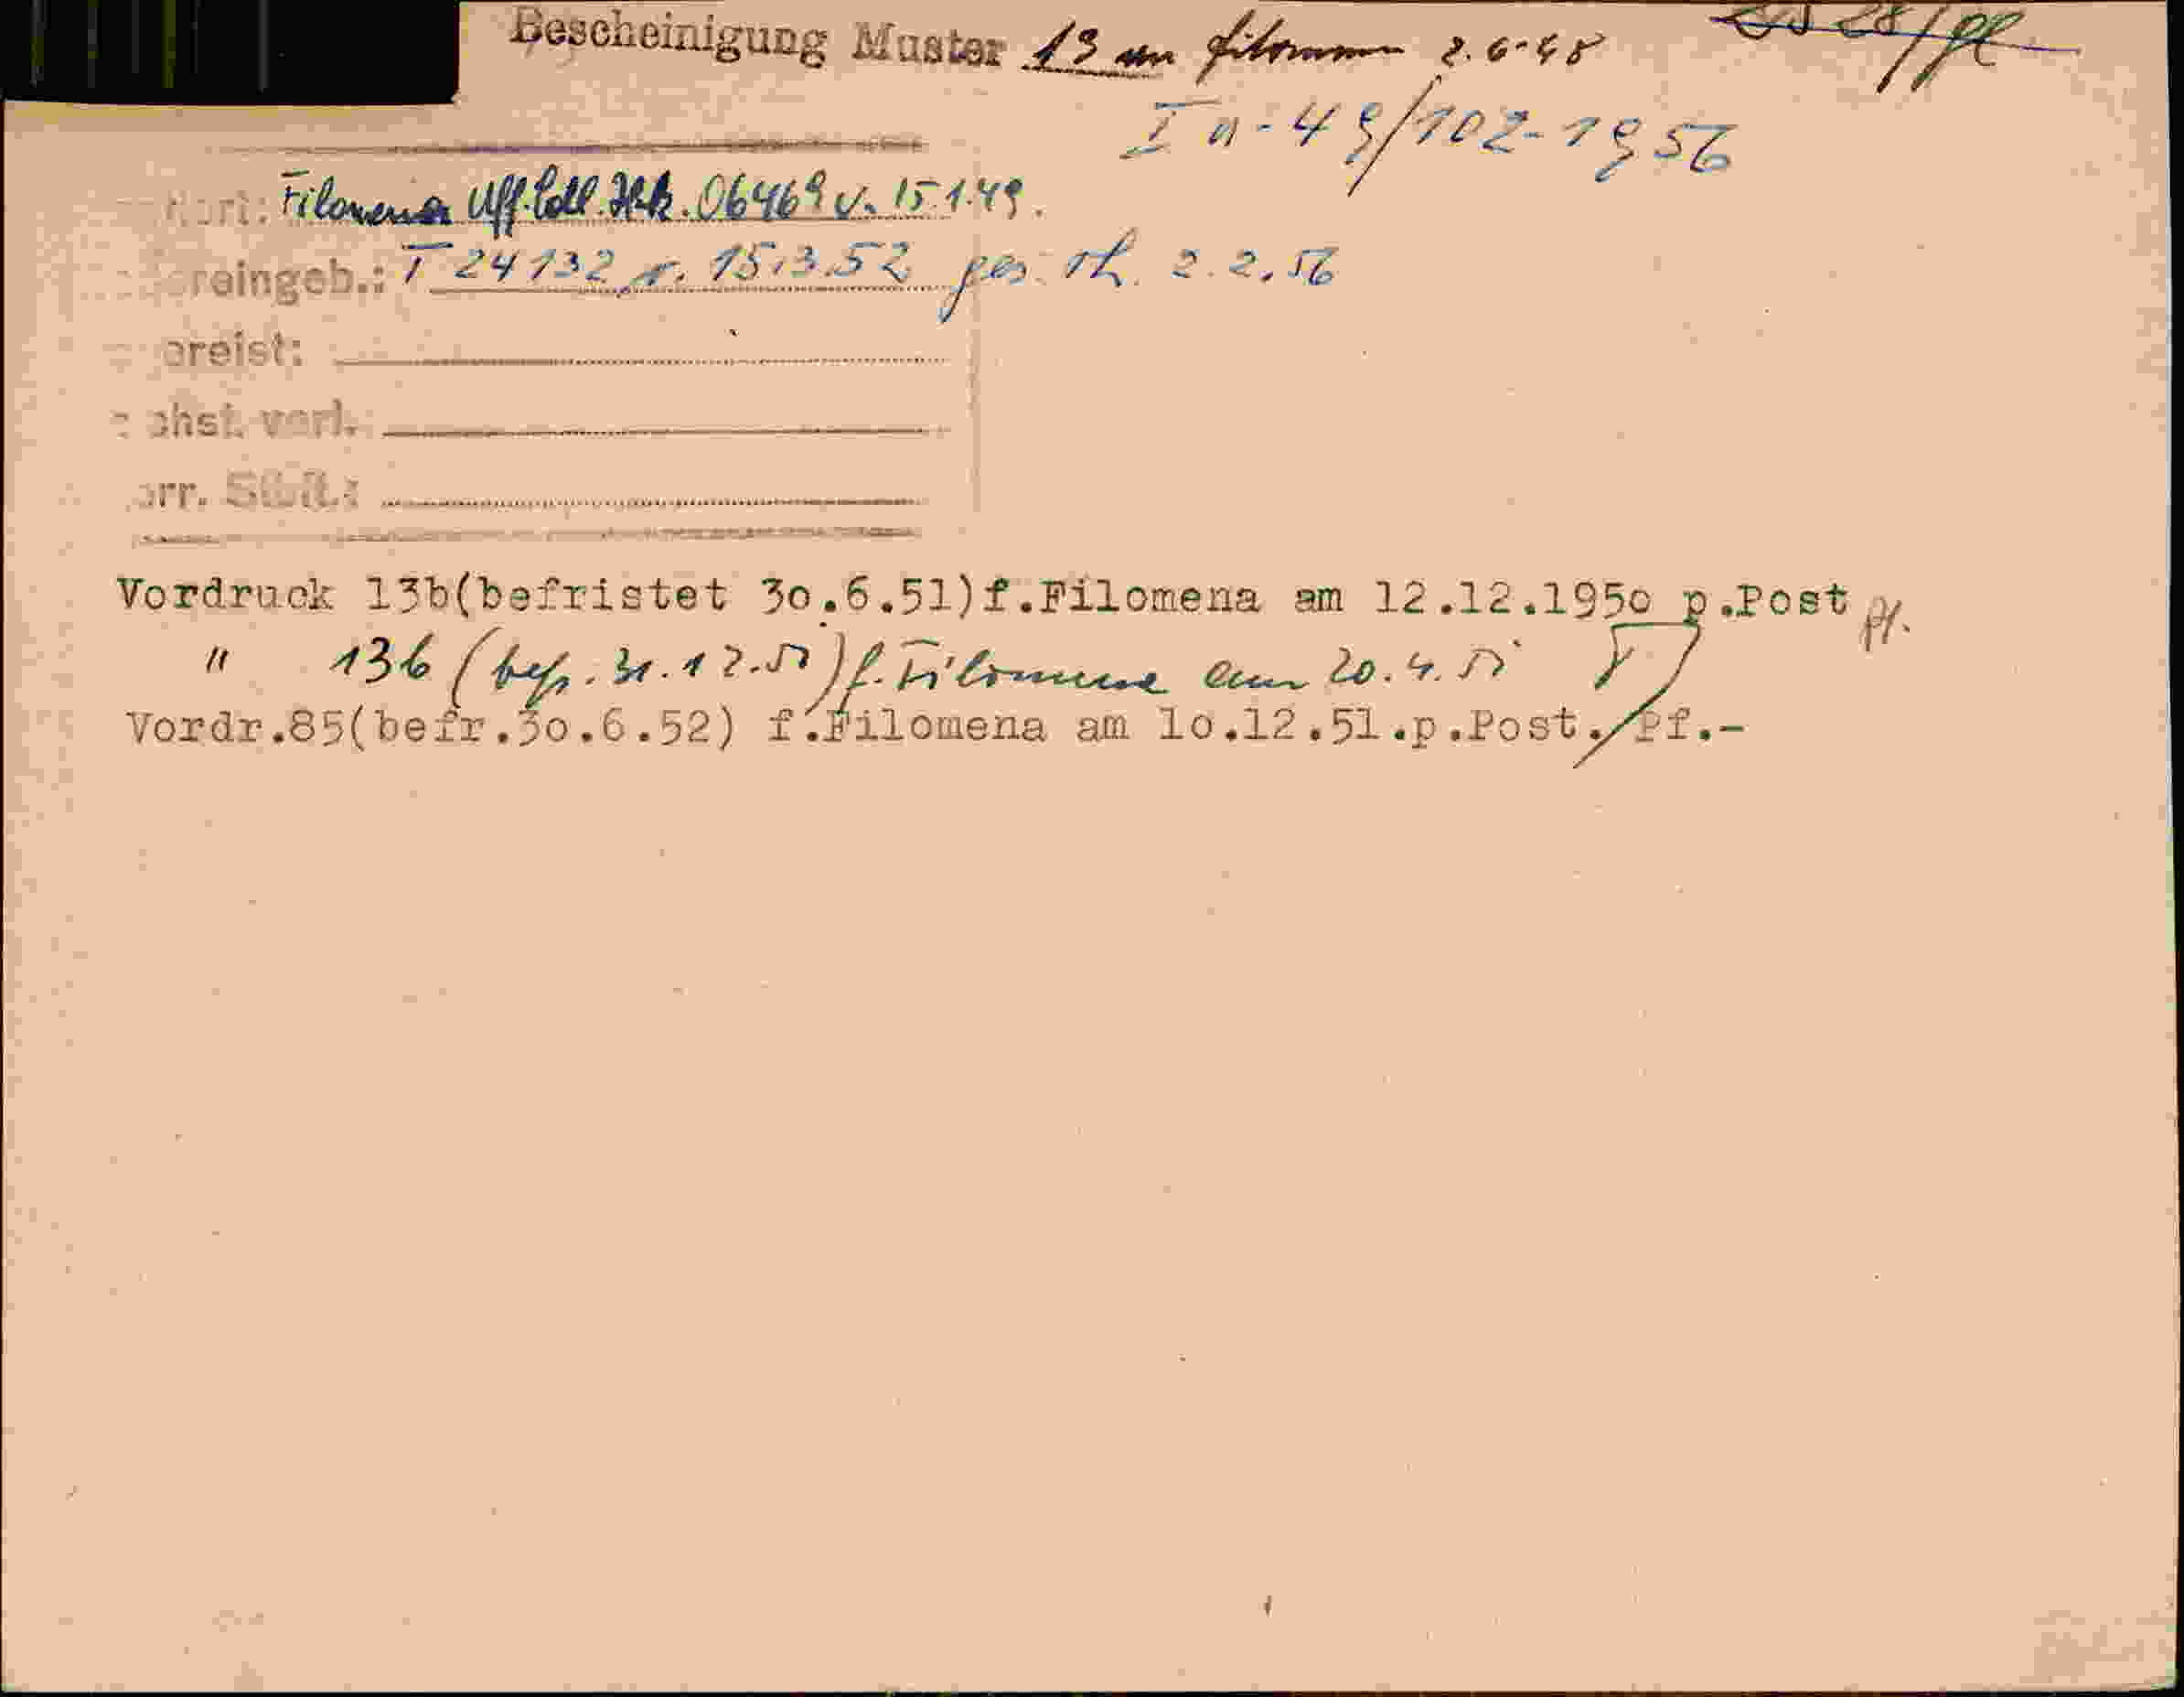 Bescheinigung Muster 13 an Filomena 2.6.48
I a - 49/102-1956
Filomena Uff. Coll. 06469 v. 15.1.49.
reingeb.: T 24132 v. 15.3.52 ges. rh. 2.2.56
reist:
chst. vorl.
rr.
Vordruck 13b(befristet 3o.6.51)f.Filomena am 12.12.195o p.Post pf.
" 13b (befr. 31.12.51) f. Filomena am 20.4.51
Vordr.85(befr.3o.6.52) f.Filomena am 1o.12.51.p.Post./Pf.-